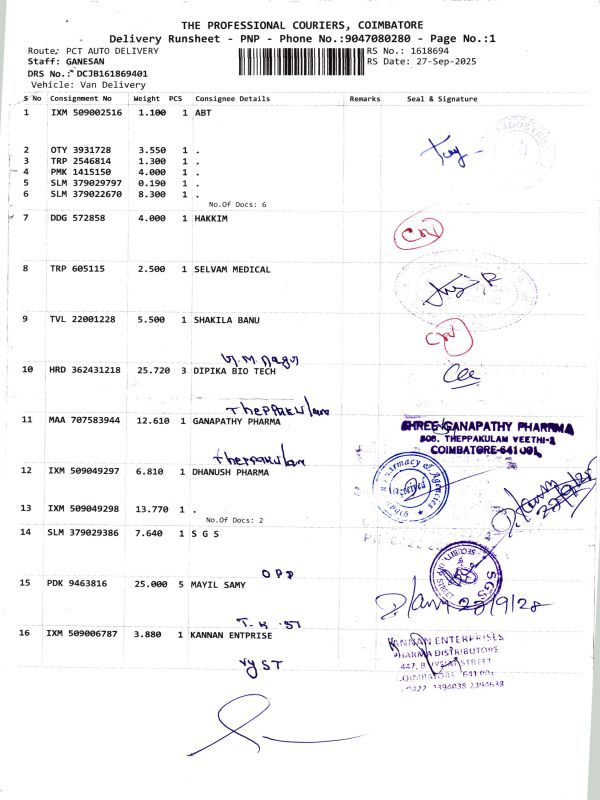 THE PROFESSIONAL COURIERS, COIMBATORE
Delivery Runsheet - PNP - Phone No.:9047080280 - Page No.:1
Route: PCT AUTO DELIVERY RS No.: 1618694
Staff: GANESAN RS Date: 27-Sep-2025
DRS No.: DCJB161869401
Vehicle: Van Delivery
S No Consignment No Weight PCS Consignee Details Remarks Seal & Signature
1 IXM 509002516 1.100 1 ABT
2 OTY 3931728 3.550 1 .
3 TRP 2546814 1.300 1 .
4 PMK 1415150 4.000 1 .
5 SLM 379029797 0.190 1 .
6 SLM 379022670 8.300 1 .
No.Of Docs: 6
7 DDG 572858 4.000 1 HAKKIM
8 TRP 605115 2.500 1 SELVAM MEDICAL
9 TVL 22001228 5.500 1 SHAKILA BANU
10 HRD 362431218 25.720 3 DIPIKA BIO TECH
Theppakulam
11 MAA 707583944 12.610 1 GANAPATHY PHARMA
SHREE GANAPATHY PHARMA
THEPPAKULAM VEETHI-1
COIMBATORE-641 001.
Theppakulam
12 IXM 509049297 6.810 1 DHANUSH PHARMA
Pharmacy Agencies
13 IXM 509049298 13.770 1 .
No.Of Docs: 2
14 SLM 379029386 7.640 1 S G S
SGS
SECURITY
OPP
15 PDK 9463816 25.000 5 MAYIL SAMY
T.K.ST
16 IXM 509006787 3.880 1 KANNAN ENTPRISE
KANNAN ENTERPRISES
PHARMA DISTRIBUTORS
447, STREET
COIMBATORE 641 001
0422 2394038 2394638
VY ST